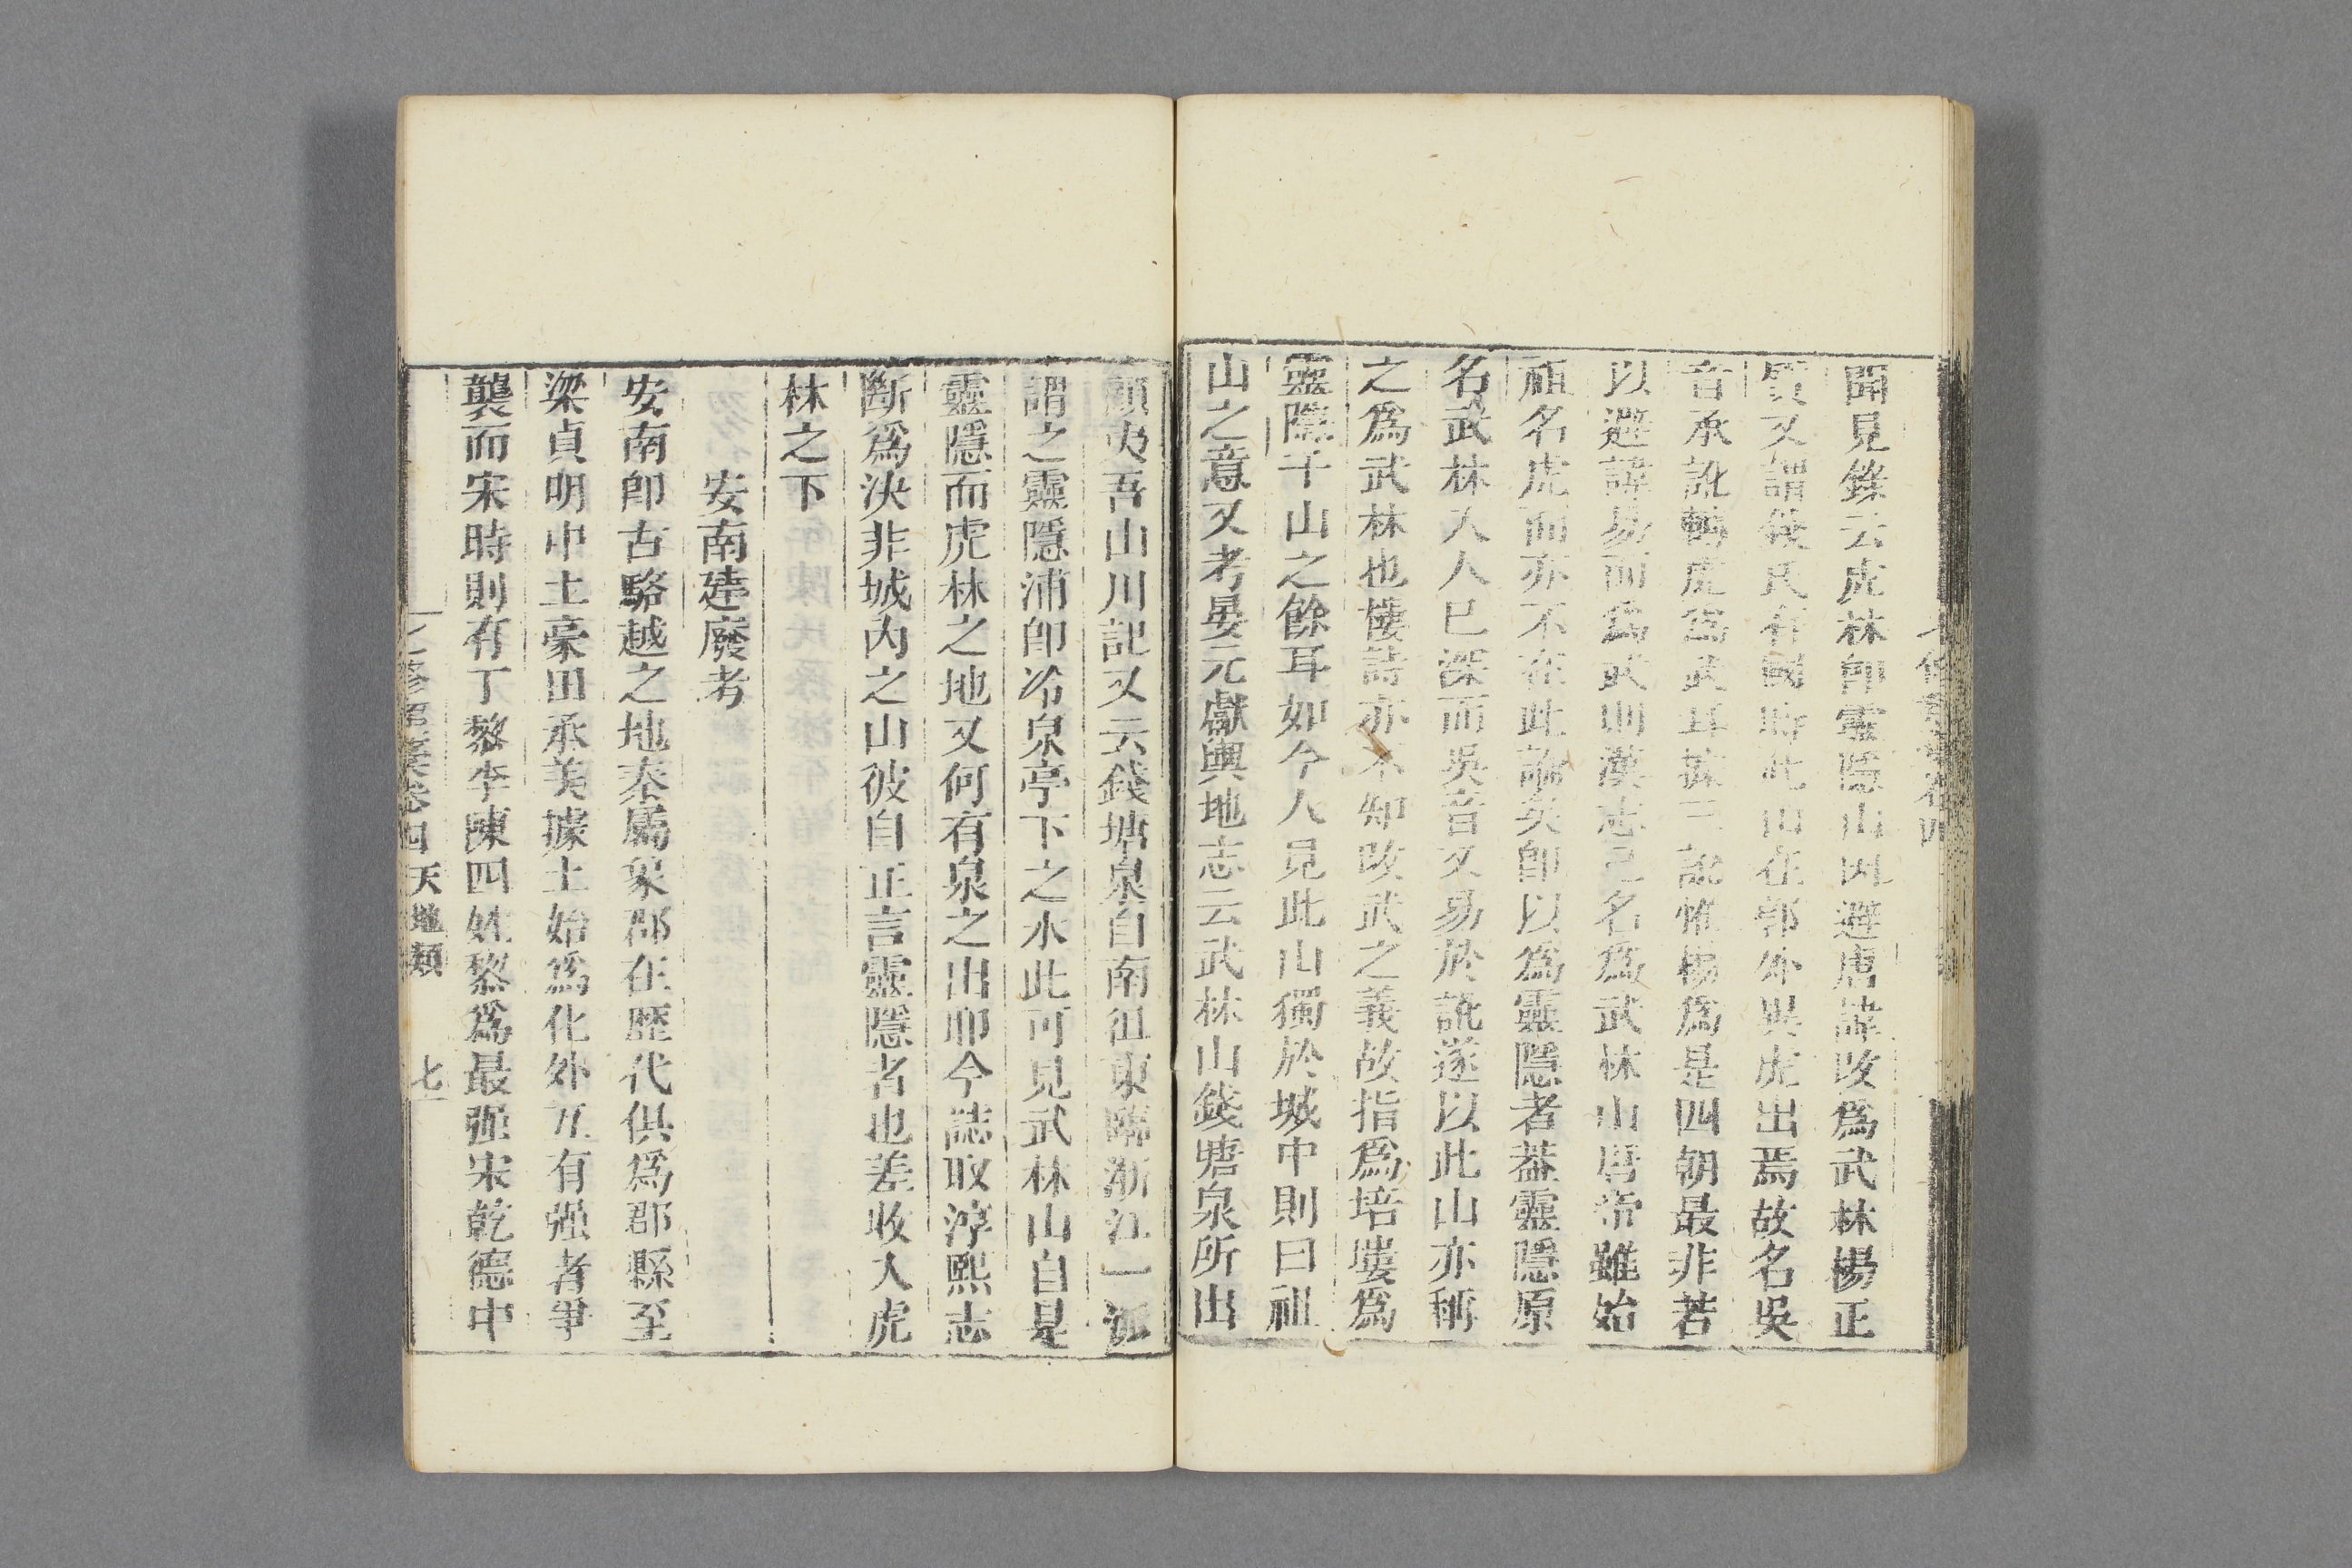 聞見錄云虎林卽靈隱山因避唐諱改爲武林楊正
質又謂錢氏有國時此山在郭外異虎出焉故名吳
音承訛轉虎爲武耳據三說惟楊爲是四朝最非若
以避諱易而爲武則漢志已名爲武林山唐帝雖始
祖名虎而亦不在此論矣卽以爲靈隱者葢靈隱原
名武林人人已深而吳音又易於訛遂以此山亦稱
之爲武林也樓詩亦不知改武之義故指爲培塿爲
靈隱千山之餘耳如今人見此山獨於城中則曰祖
山之意又考晏元獻輿地志云武林山錢塘泉所出
顧夷吾山川記又云錢塘泉自南徂東歸浙江一派
謂之靈隱浦卽冷泉亭下之水此可見武林山自是
靈隱而虎林之地又何有泉之出耶今誌取淳熙志
斷爲決非城內之山彼自正言靈隱者也差收入虎
林之下
安南建廢考
安南卽古駱越之地秦屬象郡在歷代俱爲郡縣至
梁貞明中土豪田承美據土始爲化外互有强者爭
襲而宋時則有丁黎李陳四姓黎爲最强宋乾德中
修 藁卷四 天地類 七